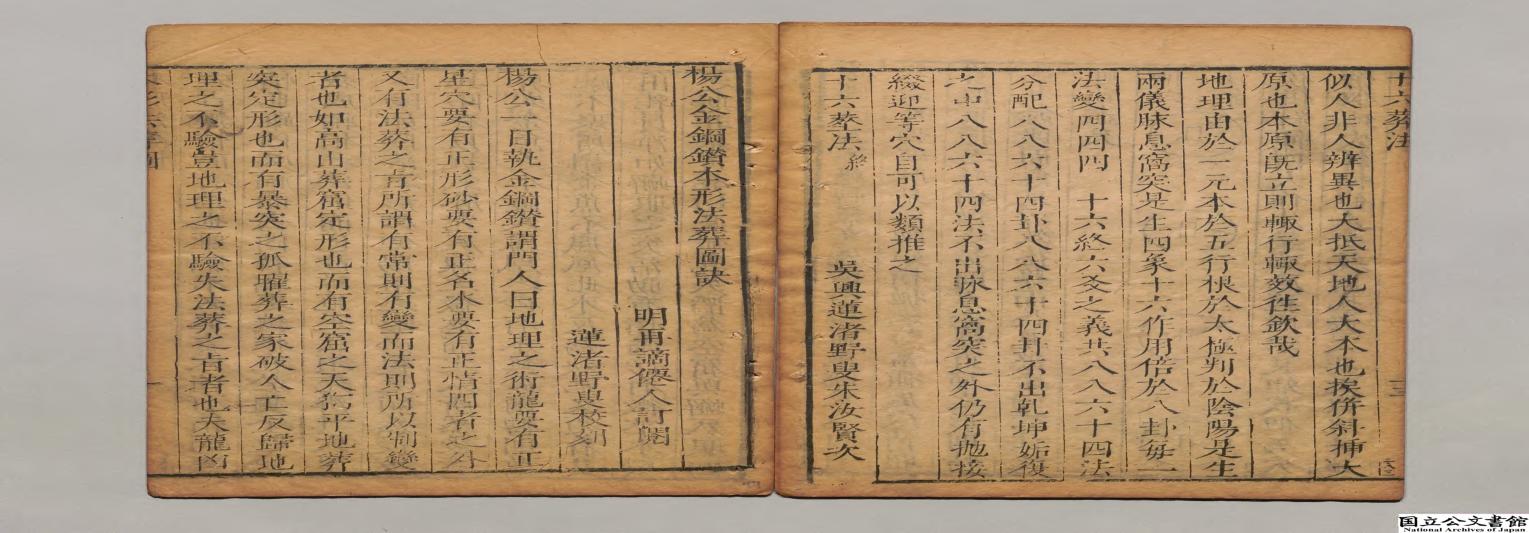 十六葬法
三
似人非人辨異也大抵天地人大本也挨併斜插大
原也本原旣立則輙行輙效徃欽哉
地理由於一元本於五行根於太極判於陰陽是生
兩儀脉息窩突是生四象十六作用倍於八卦每一
法變四四四 十六終六爻之義共八八六十四法
分配八八六十四卦八八六十四卦不出乹坤姤復
之中八八六十四法不出脉息窩突之外仍有拋接
綴迎等穴自可以類推之
十六葬法終 吳興蓮渚野叟朱汝賢次
楊公金鋼鑚本形法葬圖訣
明再謫僊人訂閱
蓮渚野叟校刻
楊公一日執金鋼鑚謂門人曰地理之術龍要有正
星穴要有正形砂要有正名水要有正情四者之外
又有法葬之旨所謂有常則有變而法則所以制變
者也如高山葬窩定形也而有空窩之天獨平地葬
突定形也而有暴突之孤曜葬之家破人亡反歸地
理之不驗豈地理之不驗失法葬之旨者也夫龍凶
国立公文書館
National Archives of Japan